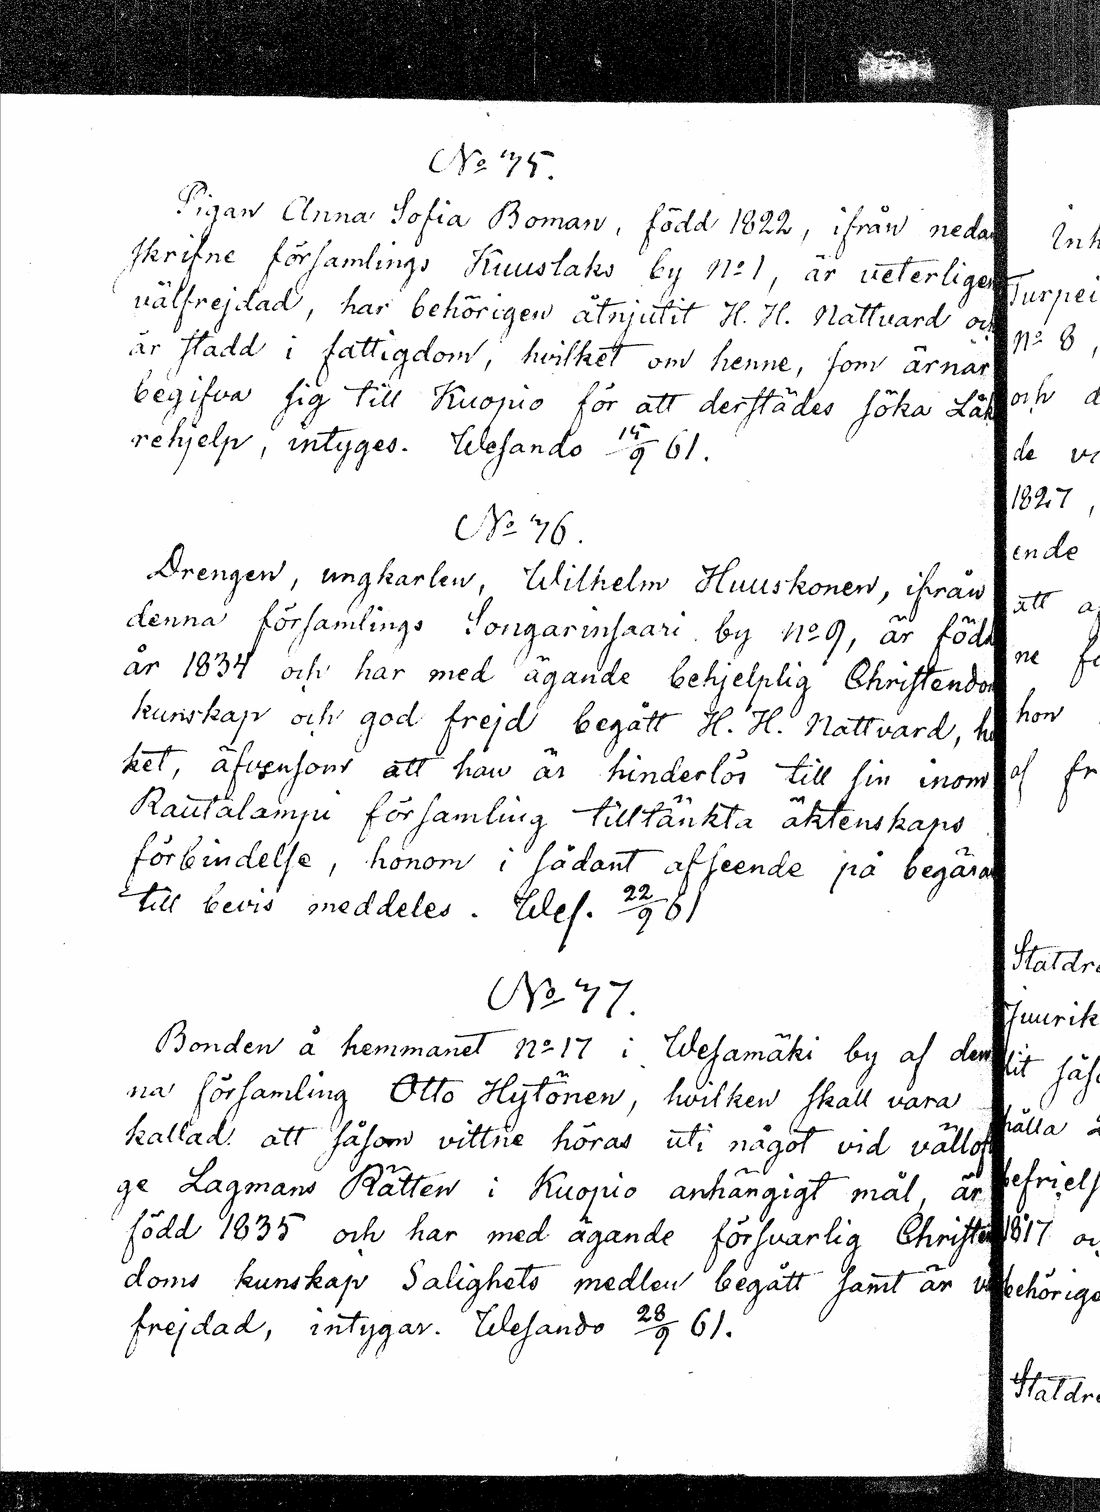 No 75.
Pigan Anna Sofia Boman, född 1822, ifrån neda
skrifne församlings Kuuslaks by No 1, är veterligen
välfrejdad, har behörigen åtnjutit H. H. Nattvard och
är stadd i fattigdom, hvilket om henne, som ärnar
begifva sig till Kuopio för att derstädes söka Läk
rehjelp, intyges. Wesando 15/9 61.
No 76.
Drengen, ungkarlen, Wilhelm Huuskonen, ifrån
denna församlings Songarinsaari by No 9, är född
år 1834 och har med ägande behjelplig Christendom
kunskap och god frejd begått H. H. Nattvard, h
ket, äfvensom att han är hinderlös till sin inom
Rautalampi församling tilltänkta äktenskaps
förbindelse, honom i sådant afseende på begäran
till bevis meddeles. Wes. 22/9 61
No 77.
Bonden å hemmanet No 17 i Wesamäki by af den
na församling Otto Hytönen, hvilken skall vara
kallad att såsom vittne höras uti något vid vällof
ge Lagmans Rätten i Kuopio anhängigt mål, är
född 1835 och har med ägande försvarlig Christen
doms kunskap Salighets medlen begått samt är v
frejdad, intygar. Wesando 28/9 61.
Inh
Turpei
No 8,
och d
de v
1827,
ende
att a
ne fö
hon
af fr
Statdr
Juurik
lit såso
hålla
befriels
1817 oc
behörige
Statdr